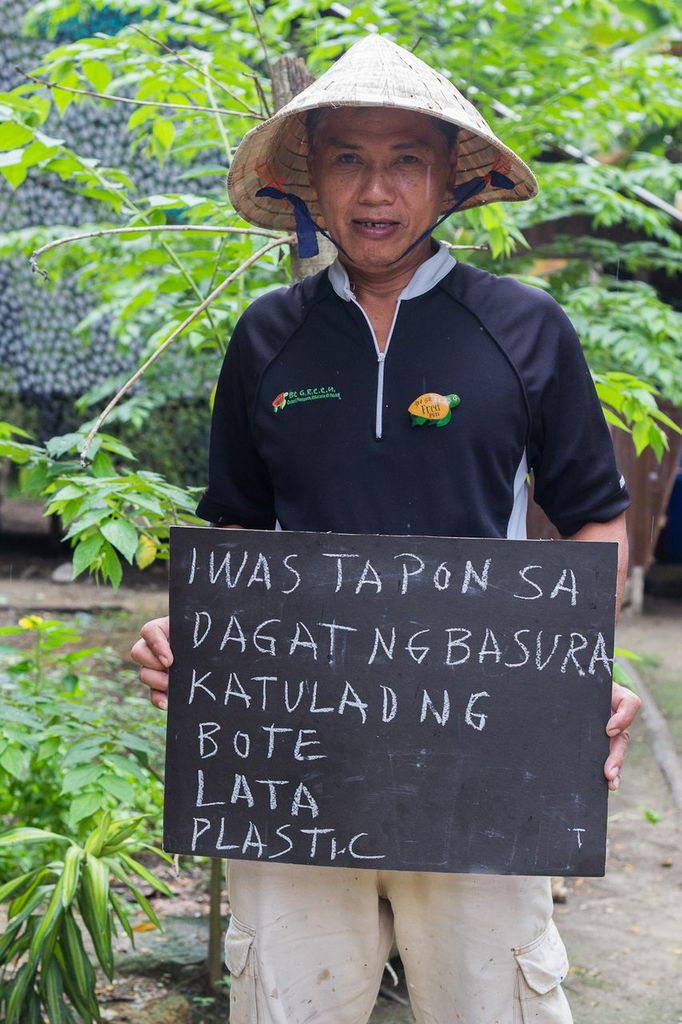 Be G.R.E.E.N.
Fred
IWAS TAPON SA
DAGAT NG BASURA
KATULAD NG
BOTE
LATA
PLASTIC
T